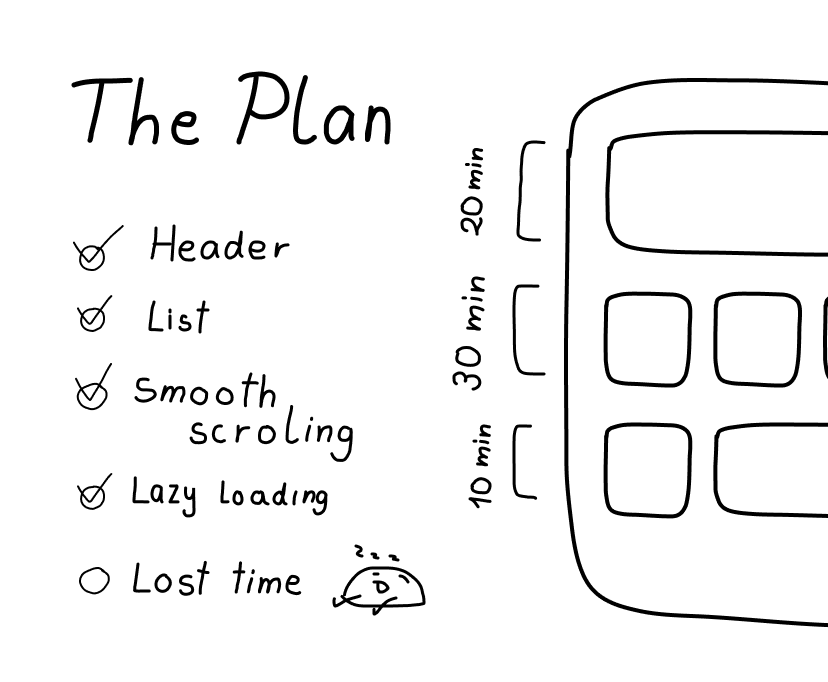 The Plan
Header
List
Smooth
scroling
Lazy Loading
Lost time
zzz
20 min
30 min
10 min